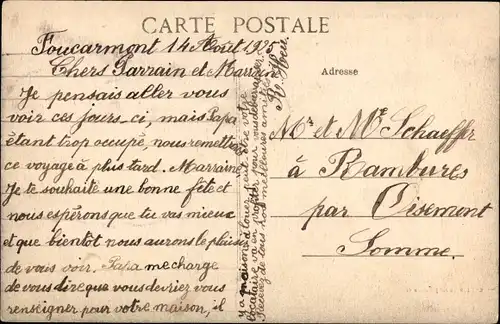 CARTE POSTALE
Foucarmont 14 Août 1925
Chers Parrain et Marraine
Je pensais aller vous
voir ces jours-ci, mais Papa
étant trop occupé, nous remettons
ce voyage à plus tard. Marraine
Je te souhaite une bonne fête et
nous espérons que tu vas mieux
et que bientôt nous aurons le plaisir
de vous voir. Papa me charge
de vous dire que vous devriez vous
renseigner pour votre maison, il
y a maisons à louer, peut-être votre
locataire va en profiter pour vous débarrasser
Recevez de tous nos meilleures amitiés
Adresse
Mr et Me Schaeffer
à Rambures
par Oisemont
Somme.